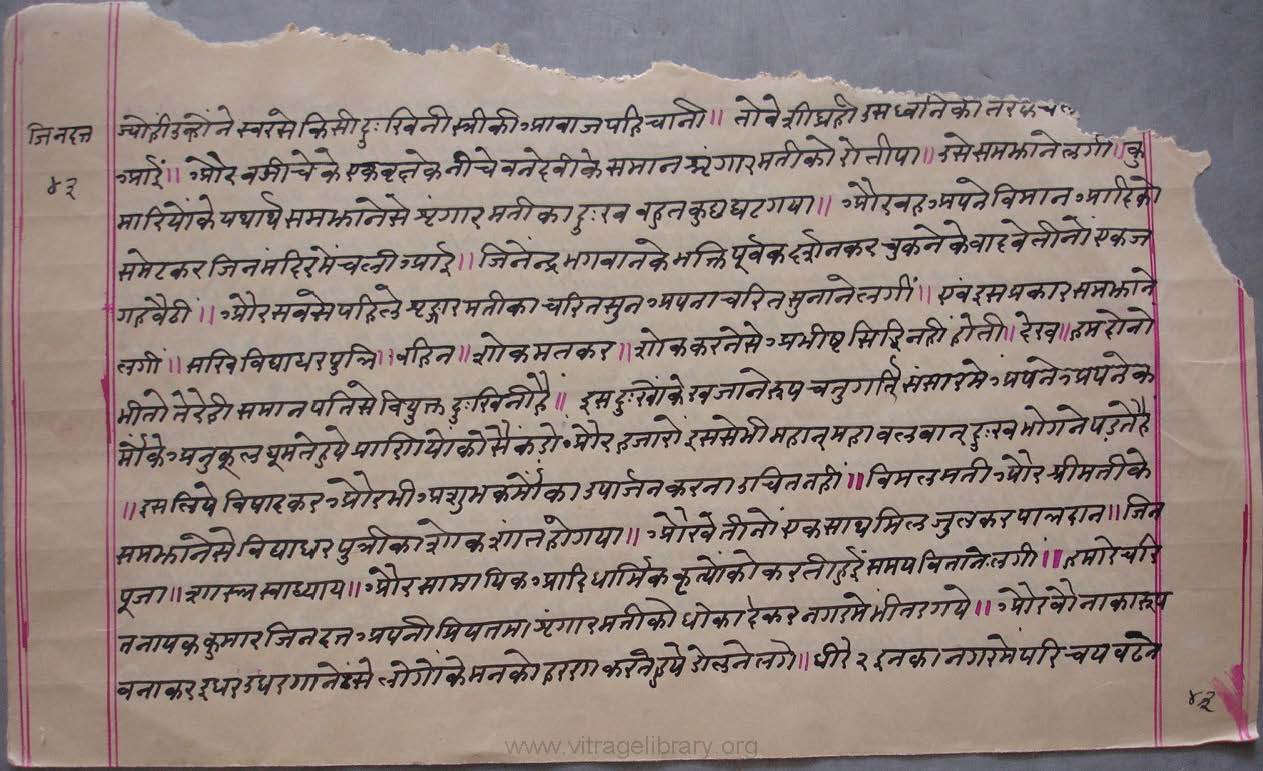 जिनदत्त
४३
ज्योंही उन्होंने स्वरसे किसी दुःखिनी स्त्रीकी आवाज पहिचानी॥ तो वे शीघ्रही उस ध्वनिकी तरफ
आईं॥ और बगीचेके एक वृक्षके नीचे वनदेवीके समान शृंगारमतीको रोती पा॥ उसे समझाने लगीं॥ कु
मारियोंके यथार्थ समझानेसे शृंगारमतीका दुःख बहुत कुछ घट गया॥ और वह अपने विमान आदिको
समेटकर जिनमंदिरमें चली आई॥ जिनेन्द्र भगवानके भक्ति पूर्वक दर्शनकर चुकनेके बाद वे तीनों एक ज
गह बैठीं॥ और सबसे पहिले शृङ्गारमतीका चरित सुन अपना चरित सुनाने लगीं॥ एवं इस प्रकार समझाने
लगीं॥ सखि विद्याधरपुत्रि॥ बहिन॥ शोक मत कर॥ शोक करनेसे अभीष्ट सिद्धि नहीं होती॥ देख॥ हम दोनों
भी तो तेरेही समान पतिसे वियुक्त दुःखिनी हैं॥ इस दुःखोंके खजाने रूप चतुर्गति संसारमें अपने अपने क
र्मोंके अनुकूल घूमते हुये प्राणियोंको सैंकडो और हजारों इससेभी महान् महा बलवान् दुःख भोगने पड़ते हैं
॥ इसलिये विषादकर औरभी अशुभ कर्मोंका उपार्जन करना उचित नहीं॥ विमलमती और श्रीमतीके
समझानेसे विद्याधर पुत्रीका शोक शांत हो गया॥ और वे तीनों एक साथ मिल जुलकर पात्रदान॥ जिन
पूजा॥ शास्त्र स्वाध्याय॥ और सामायिक आदि धार्मिक कृत्योंको करती हुईं समय बिताने लगीं॥ हमारे चरि
तनायक कुमार जिनदत्त अपनी प्रियतमा शृंगारमतीको धोका देकर नगरमें भीतर गये॥ और बौनाका रूप
बनाकर इधर उधर गानेसे लोगोंके मनको हरण करते हुये डोलने लगे॥ धीरे २ इनका नगरमें परिचय बढने
४३
www.vitragelibrary.org